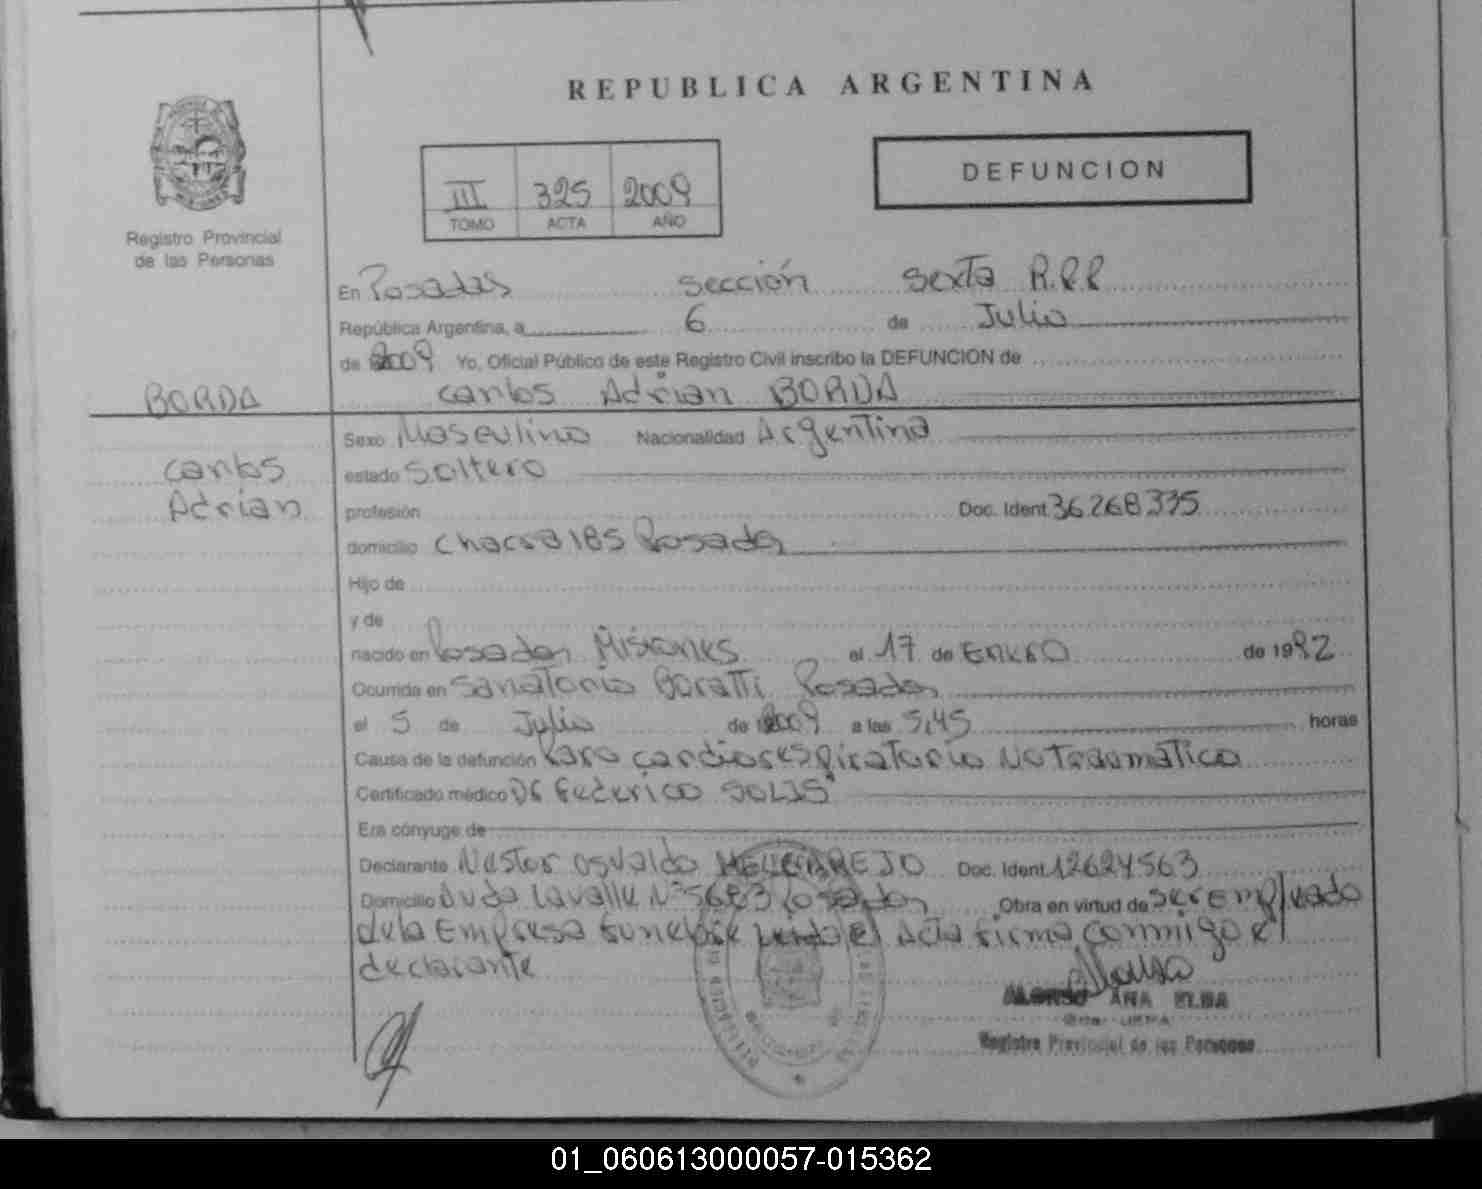 REPUBLICA ARGENTINA
III 325 2009
TOMO ACTA AÑO
DEFUNCION
Registro Provincial
de las Personas
En Posadas sección sexta R.P.P
República Argentina, a 6 de Julio
de 2009 Yo, Oficial Público de este Registro Civil inscribo la DEFUNCION de
Carlos Adrian BORDA
BORDA
Carlos
Adrian
Sexo Masculino Nacionalidad Argentina
estado Soltero
profesión Doc. Ident 36268335
domicilio Chacra 185 Posadas
Hijo de
y de
nacido en Posadas Misiones el 17 de ENERO de 1992
Ocurrida en Sanatorio Boratti Posadas
el 5 de Julio de 2009 a las 5,45 horas
Causa de la defunción Paro cardiorespiratorio No Traumatico
Certificado médico Dr Federico SOLIS
Era cónyuge de
Declarante Nestor Osvaldo Doc. Ident 12624563
Domicilio Avda Lavalle Nº 5683 Posadas Obra en virtud de ser Empleado
de la Empresa Funebre Leida el Acta firma conmigo el
declarante
ALONSO ANA ELBA
Registro Provincial de las Personas
01_060613000057-015362